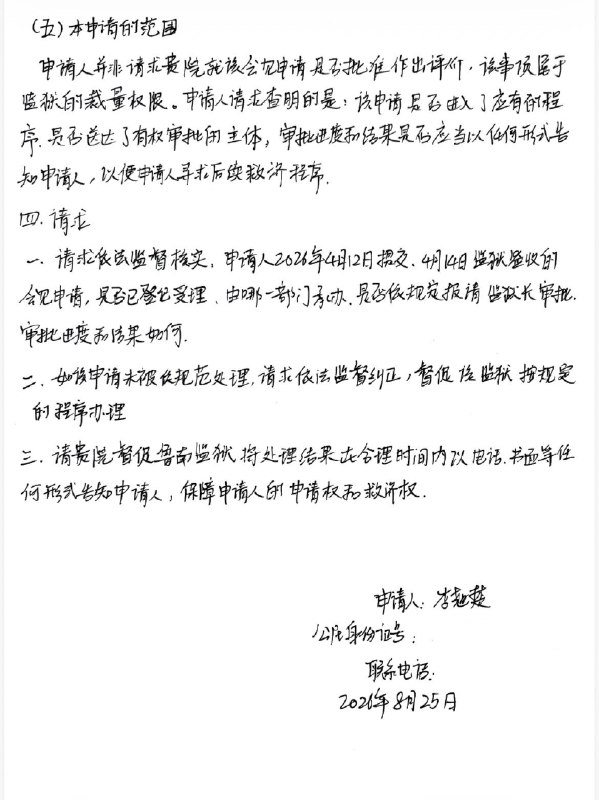 (五)本申请的范围
申请人并非请求贵院就该会见申请是否批准作出评价,该事项属于
监狱的裁量权限。申请人请求查明的是:该申请是否进入了应有的程
序.是否送达了有权审批的主体,审批进度和结果是否应当以任何形式告
知申请人,以便申请人寻求后续救济程序.
四.请求
一.请求依法监督核实,申请人2026年4月12日提交、4月14日监狱签收的
会见申请,是否已登记受理、由哪一部门承办、是否依规定报请监狱长审批.
审批进度和结果如何.
二.如该申请未被依规范处理,请求依法监督纠正,督促该监狱按规定
的程序办理
三.请贵院督促鲁南监狱将处理结果在合理时间内以电话.书面等任
何形式告知申请人,保障申请人的申请权和救济权.
申请人:李翘楚
公民身份证号:
联系电话:
2026年8月25日